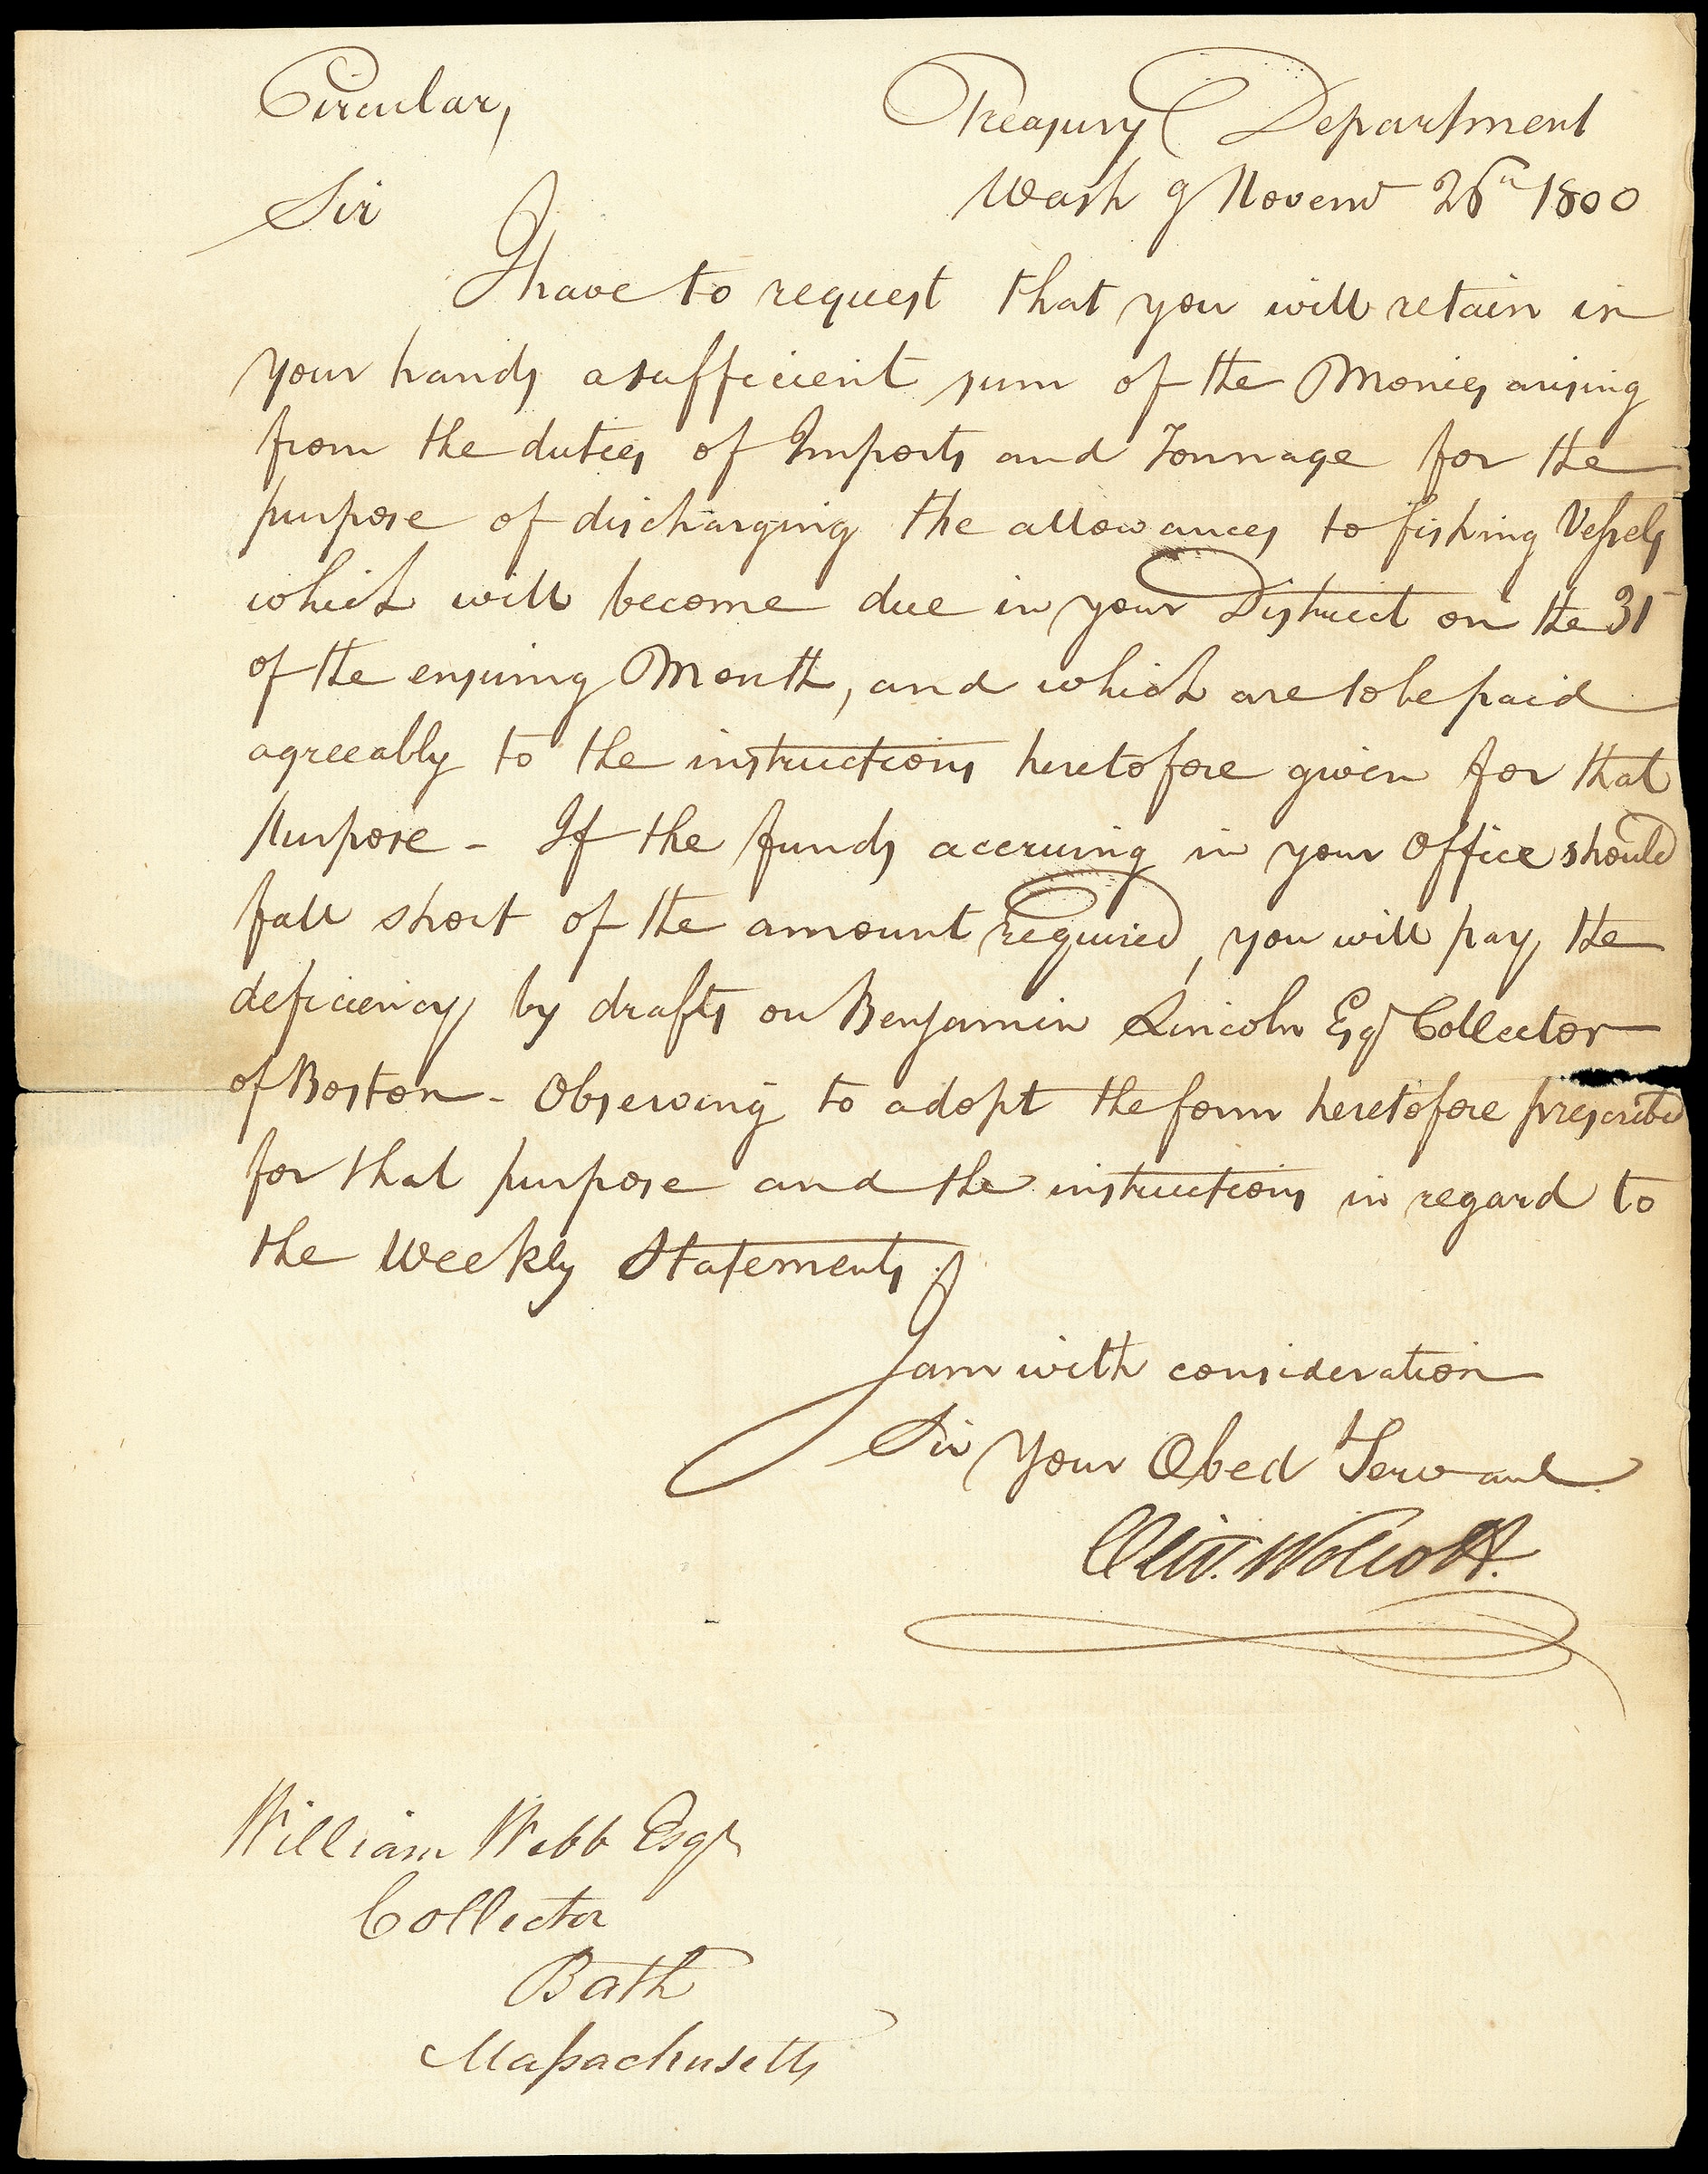 Circular,
Treasury Department
Wash g Novemr 26th 1800
Sir
I have to request that you will retain in
your hands a sufficient sum of the Monies arising
from the duties of Imports and Tonnage for the
purpose of discharging the allowances to fishing Vessels
which will become due in your District on the 31
of the ensuing Month, and which are to be paid
agreeably to the instructions heretofore given for that
Purpose - If the funds accruing in your Office should
fall short of the amount required, you will pay the
deficiency by drafts on Benjamin Lincoln Esqr Collector
of Boston - Observing to adopt the form heretofore prescribed
for that purpose and the instructions in regard to
the Weekly Statements.
I am with consideration
Sir Your Obed Servant
Oliv. Wolcott.
William Webb Esqr
Collector
Bath
Massachusetts